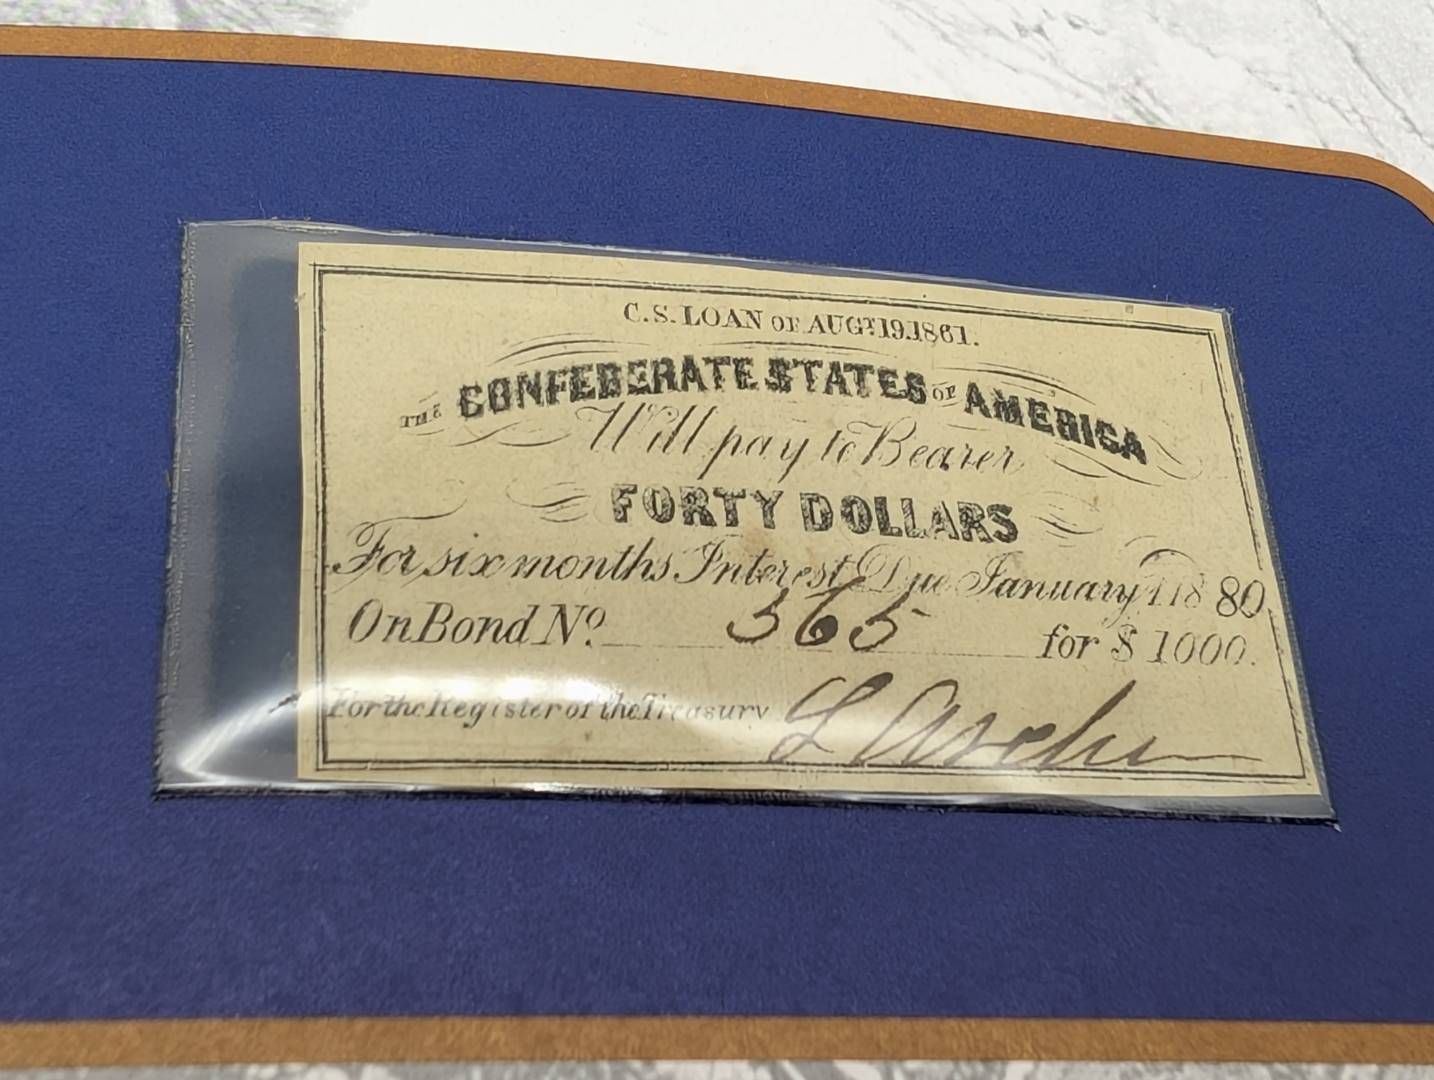 C.S. LOAN OF AUGT. 19.1861.
THE CONFEDERATE STATES OF AMERICA
Will pay to Bearer
FORTY DOLLARS
For six months Interest Due January 1 1880
On Bond No. 365 for $ 1000.
For the Register of the Treasury